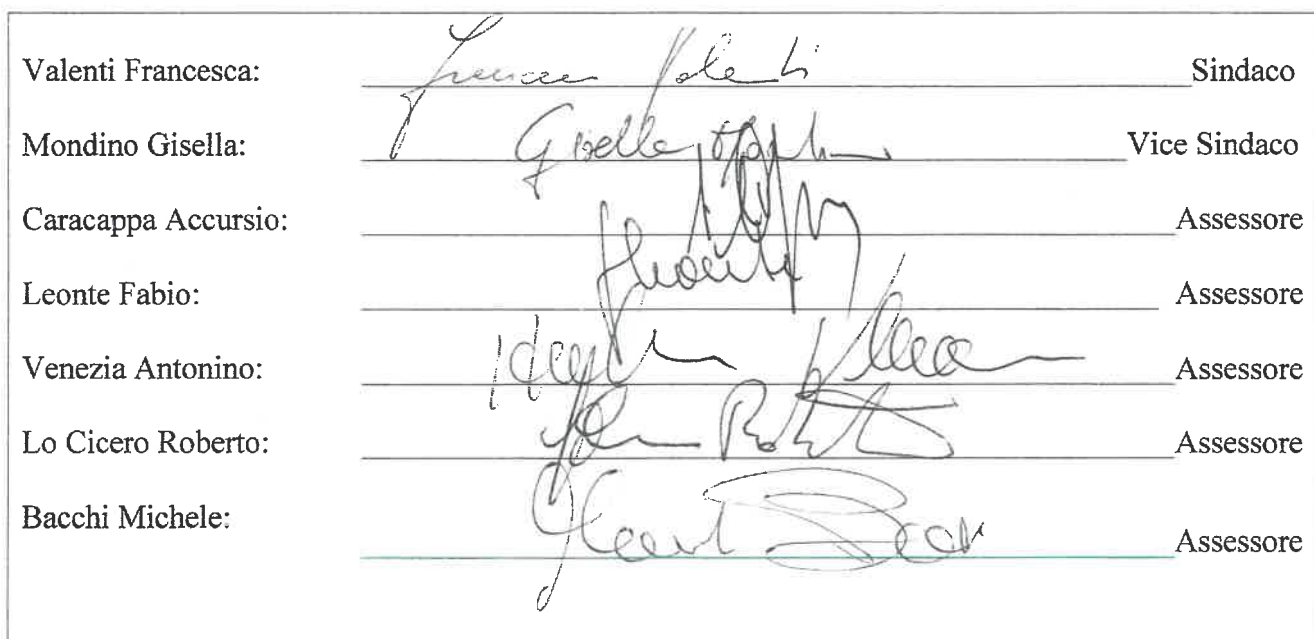 Valenti Francesca: Francesca Valenti Sindaco
Mondino Gisella: Gisella Vice Sindaco
Caracappa Accursio: Assessore
Leonte Fabio: Assessore
Venezia Antonino: Assessore
Lo Cicero Roberto: Assessore
Bacchi Michele: Assessore